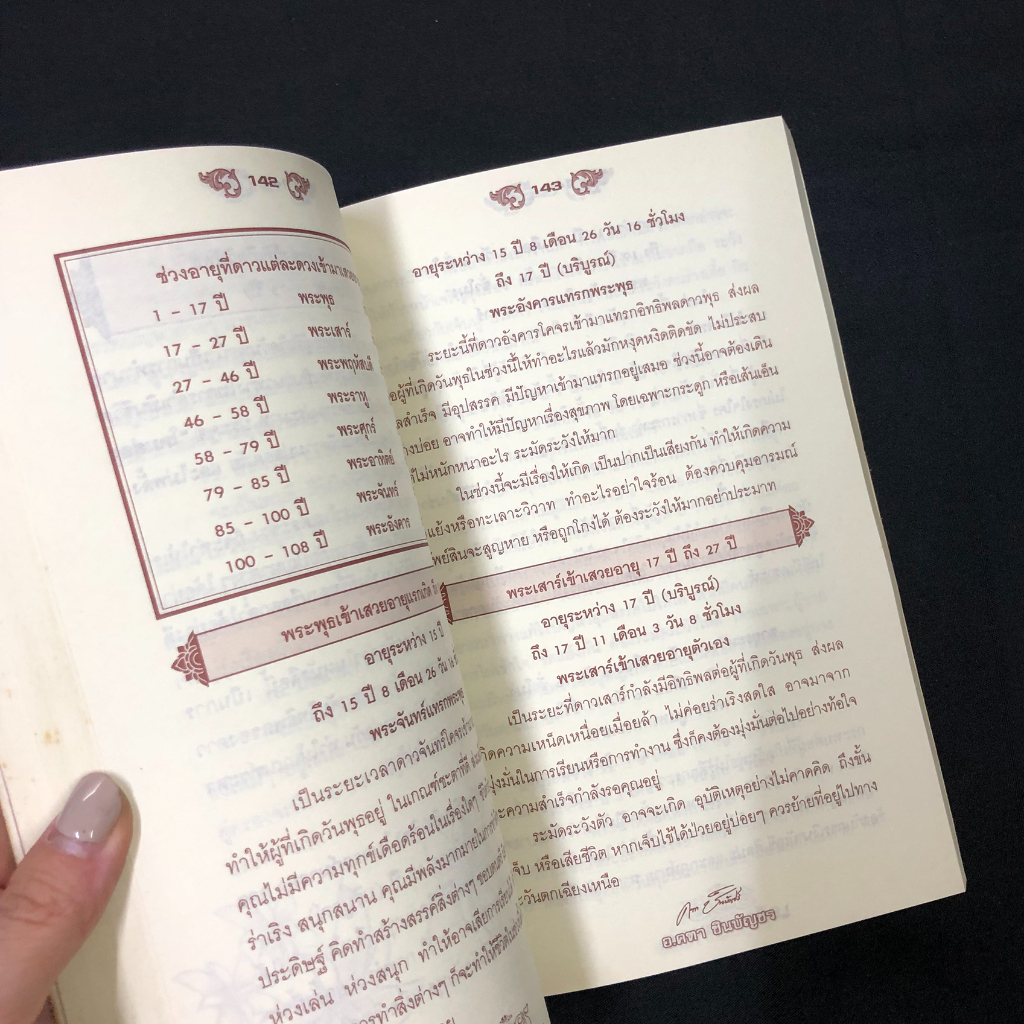 142
ช่วงอายุที่ดาวแต่ละดวงเข้ามาเสวย
1 - 17 ปี พระพุธ
17 - 27 ปี พระเสาร์
27 - 46 ปี พระพฤหัสบดี
46 - 58 ปี พระราหู
58 - 79 ปี พระศุกร์
79 - 85 ปี พระอาทิตย์
85 - 100 ปี พระจันทร์
100 - 108 ปี พระอังคาร
พระพุธเข้าเสวยอายุแรกเกิด
อายุระหว่าง 15 ปี
ถึง 15 ปี 8 เดือน 26 วัน 16
พระจันทร์แทรกพระพุธ
เป็นระยะเวลาดาวจันทร์โคจรเข้ามา
ทำให้ผู้ที่เกิดวันพุธอยู่ ในเกณฑ์ชะตาที่ดี
คุณไม่มีความทุกข์เดือดร้อนในเรื่องใดๆ
ร่าเริง สนุกสนาน คุณมีพลังมากมายในการ
ประดิษฐ์ คิดทำสร้างสรรค์สิ่งต่างๆ
ห่วงเล่น ห่วงสนุก ทำให้อาจเสียการเรียน
การทำสิ่งต่างๆ ก็จะทำให้ชีวิต
143
อายุระหว่าง 15 ปี 8 เดือน 26 วัน 16 ชั่วโมง
ถึง 17 ปี (บริบูรณ์)
พระอังคารแทรกพระพุธ
ระยะนี้ที่ดาวอังคารโคจรเข้ามาแทรกอิทธิพลดาวพุธ ส่งผล
ผู้ที่เกิดวันพุธในช่วงนี้ให้ทำอะไรแล้วมักหงุดหงิดติดขัด ไม่ประสบ
สำเร็จ มีอุปสรรค มีปัญหาเข้ามาแทรกอยู่เสมอ ช่วงนี้อาจต้องเดิน
บ่อย อาจทำให้มีปัญหาเรื่องสุขภาพ โดยเฉพาะกระดูก หรือเส้นเอ็น
ไม่หนักหนาอะไร ระมัดระวังให้มาก
ในช่วงนี้จะมีเรื่องให้เกิด เป็นปากเป็นเสียงกัน ทำให้เกิดความ
แย้งหรือทะเลาะวิวาท ทำอะไรอย่าใจร้อน ต้องควบคุมอารมณ์
พย์สินจะสูญหาย หรือถูกโกงได้ ต้องระวังให้มากอย่าประมาท
พระเสาร์เข้าเสวยอายุ 17 ปี ถึง 27 ปี
อายุระหว่าง 17 ปี (บริบูรณ์)
ถึง 17 ปี 11 เดือน 3 วัน 8 ชั่วโมง
พระเสาร์เข้าเสวยอายุตัวเอง
เป็นระยะที่ดาวเสาร์กำลังมีอิทธิพลต่อผู้ที่เกิดวันพุธ ส่งผล
เกิดความเหน็ดเหนื่อยเมื่อยล้า ไม่ค่อยร่าเริงสดใส อาจมาจาก
มุ่งมั่นในการเรียนหรือการทำงาน ซึ่งก็คงต้องมุ่งมั่นต่อไปอย่าท้อใจ
ะความสำเร็จกำลังรอคุณอยู่
ระมัดระวังตัว อาจจะเกิด อุบัติเหตุอย่างไม่คาดคิด ถึงขั้น
จ็บ หรือเสียชีวิต หากเจ็บไข้ได้ป่วยอยู่บ่อยๆ ควรย้ายที่อยู่ไปทาง
ะวันตกเฉียงเหนือ
อ.คฑา ชินบัญชร